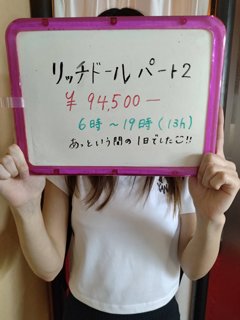 リッチドール パート2
¥94,500−
6時〜19時(13h)
あっという間の1日でした!!